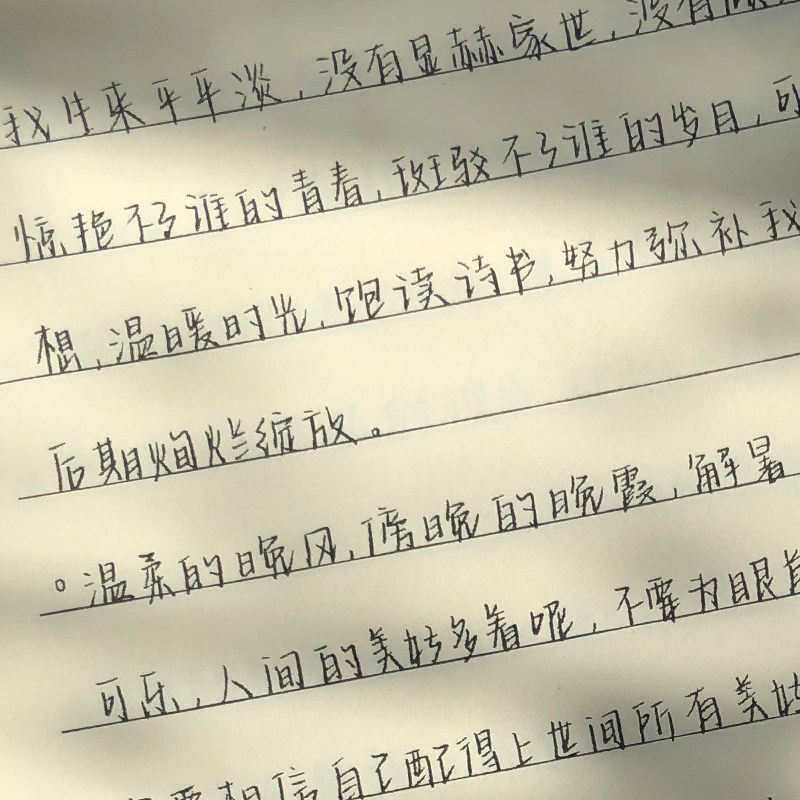 我生来平平淡，没有显赫家世，没有
惊艳不了谁的青春，斑驳不了谁的岁月，可
想，温暖时光，饱读诗书，努力弥补我
后期炯烂绽放。
。温柔的晚风，傍晚的晚霞，解暑
可乐，人间的美好多着呢，不要为眼前
要相信自己配得上世间所有美好